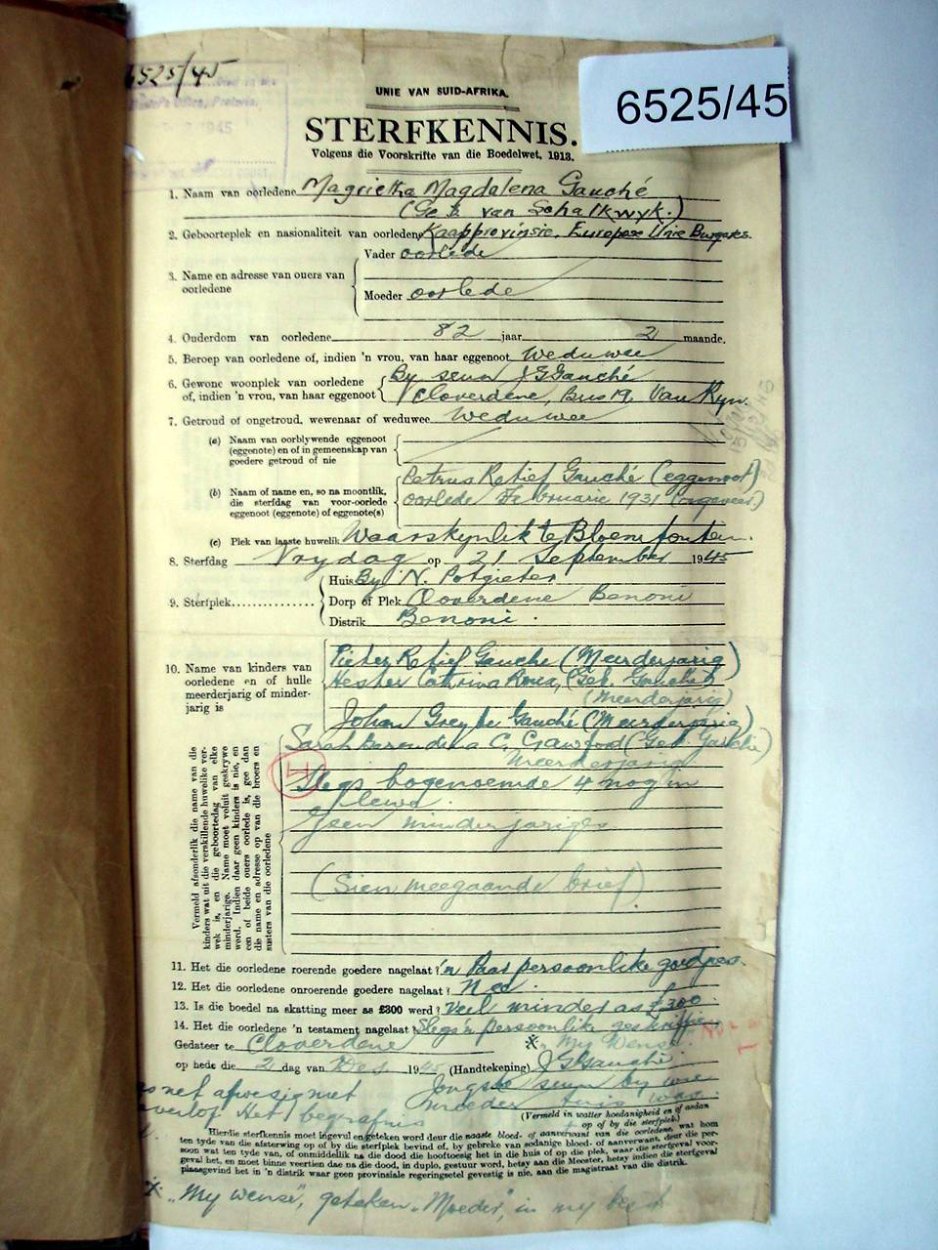 6525/45
6525/45
UNIE VAN SUID-AFRIKA.
STERFKENNIS.
Volgens die Voorskrifte van die Boedelwet, 1913.
1. Naam van oorledene Magrietha Magdalena Gauché
(Geb. van Schalkwyk.)
2. Geboorteplek en nasionaliteit van oorledene Kaapprovinsie. Europese Unie Burgeres.
3. Name en adresse van ouers van oorledene
Vader oorlede
Moeder oorlede
4. Ouderdom van oorledene 82 jaar 2 maande.
5. Beroep van oorledene of, indien 'n vrou, van haar eggenoot Weduwee
6. Gewone woonplek van oorledene
of, indien 'n vrou, van haar eggenoot
By seun J G Gauché
Cloverdene, Bus 19, Van Ryn.
7. Getroud of ongetroud, wewenaar of weduwee Weduwee
(a) Naam van oorblywende eggenoot
(eggenote) en of in gemeenskap van
goedere getroud of nie
(b) Naam of name en, so na moontlik,
die sterfdag van voor-oorlede
eggenoot (eggenote) of eggenote(s)
Petrus Retief Gauché (eggenoot)
oorlede Februarie 1931 (ongeveer)
(c) Plek van laaste huwelik Waarskynlik te Bloemfontein.
8. Sterfdag Vrydag op 21 September 1945
9. Sterfplek
Huis By N. Potgieter
Dorp of Plek Cloverdene Benoni
Distrik Benoni.
10. Name van kinders van
oorledene en of hulle
meerderjarig of minder-
jarig is
Pieter Retief Gauche (Meerderjarig)
Hester Cathrina (Geb. Gauché)
(Meerderjarig)
Johan Greybe Gauché (Meerderjarig)
Sarah Berendina C. Crawford (Geb. Gauché)
Meerderjarig
4
Slegs bogenoemde 4 nog in
lewe.
Geen minderjariges
(Sien meegaande brief)
Vermeld afsonderlik die name van die
kinders wat uit die verskillende huwelike ver-
wek is, en die geboortedag van elke
minderjarige. Name moet voluit geskrywe
word. Indien daar geen kinders is nie, en
een of beide ouers oorlede is, gee dan
die name en adresse op van die broers en
susters van die oorledene
11. Het die oorledene roerende goedere nagelaat? 'n Paar persoonlike goedjies.
12. Het die oorledene onroerende goedere nagelaat? Nee.
13. Is die boedel na skatting meer as £300 werd? Veel minder as £300.
14. Het die oorledene 'n testament nagelaat? Slegs 'n persoonlike geskriffie
Gedateer te Cloverdene x "My Wense".
op hede die 2 dag van Des 1945 (Handtekening) J G Gauché.
Jongste seun by wie
moeder tuis was.
net afwesig met
verlof. Het begrafnis
(Vermeld in watter hoedanigheid en of aldan
of op of by die sterfplek)
Hierdie sterfkennis moet ingevul en geteken word deur die naaste bloed- of aanverwant van die oorledene, wat hom
ten tyde van die afsterwing op of by die sterfplek bevind of, by gebreke van sodanige bloed- of aanverwant, deur die per-
soon wat ten tyde van, of onmiddellik na die dood die hooftoesig het in die huis of op die plek, waar die sterfgeval voor-
geval het, en moet binne veertien dae na die dood, in duplo, gestuur word, hetsy aan die Meester, hetsy indien die sterfgeval
plaasgevind het in 'n distrik waar geen provinsiale regeringsetel gevestig is nie, aan die magistraat van die distrik.
x. "My wense", geteken "Moeder", in my besit